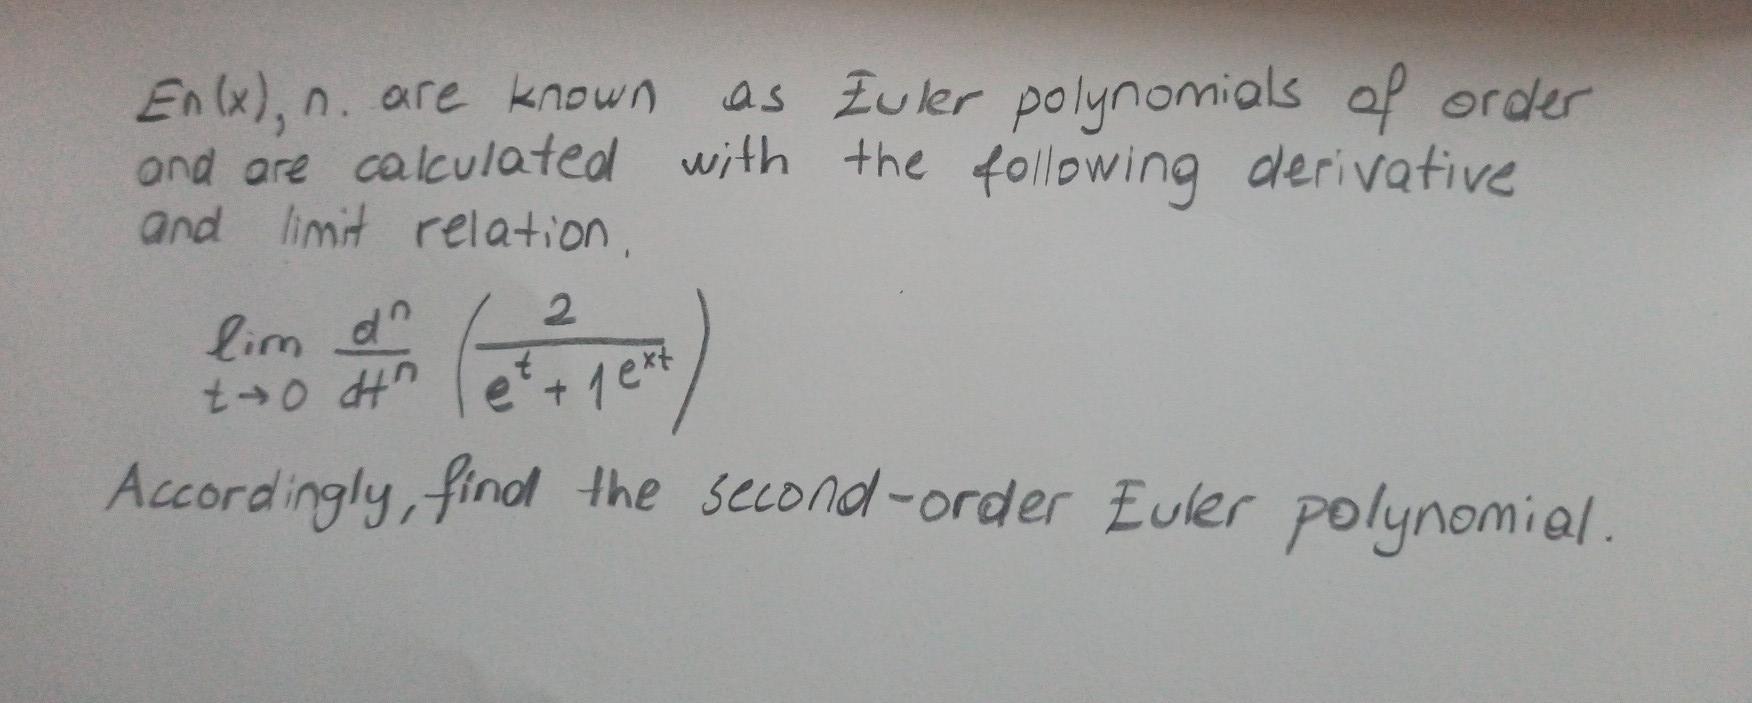 En(x), n. are known as Euler polynomials of order
and are calculated with the following derivative
and limit relation.
lim t→0 d^n/dt^n (2/(e^t + 1 e^xt))
Accordingly, find the second-order Euler polynomial.